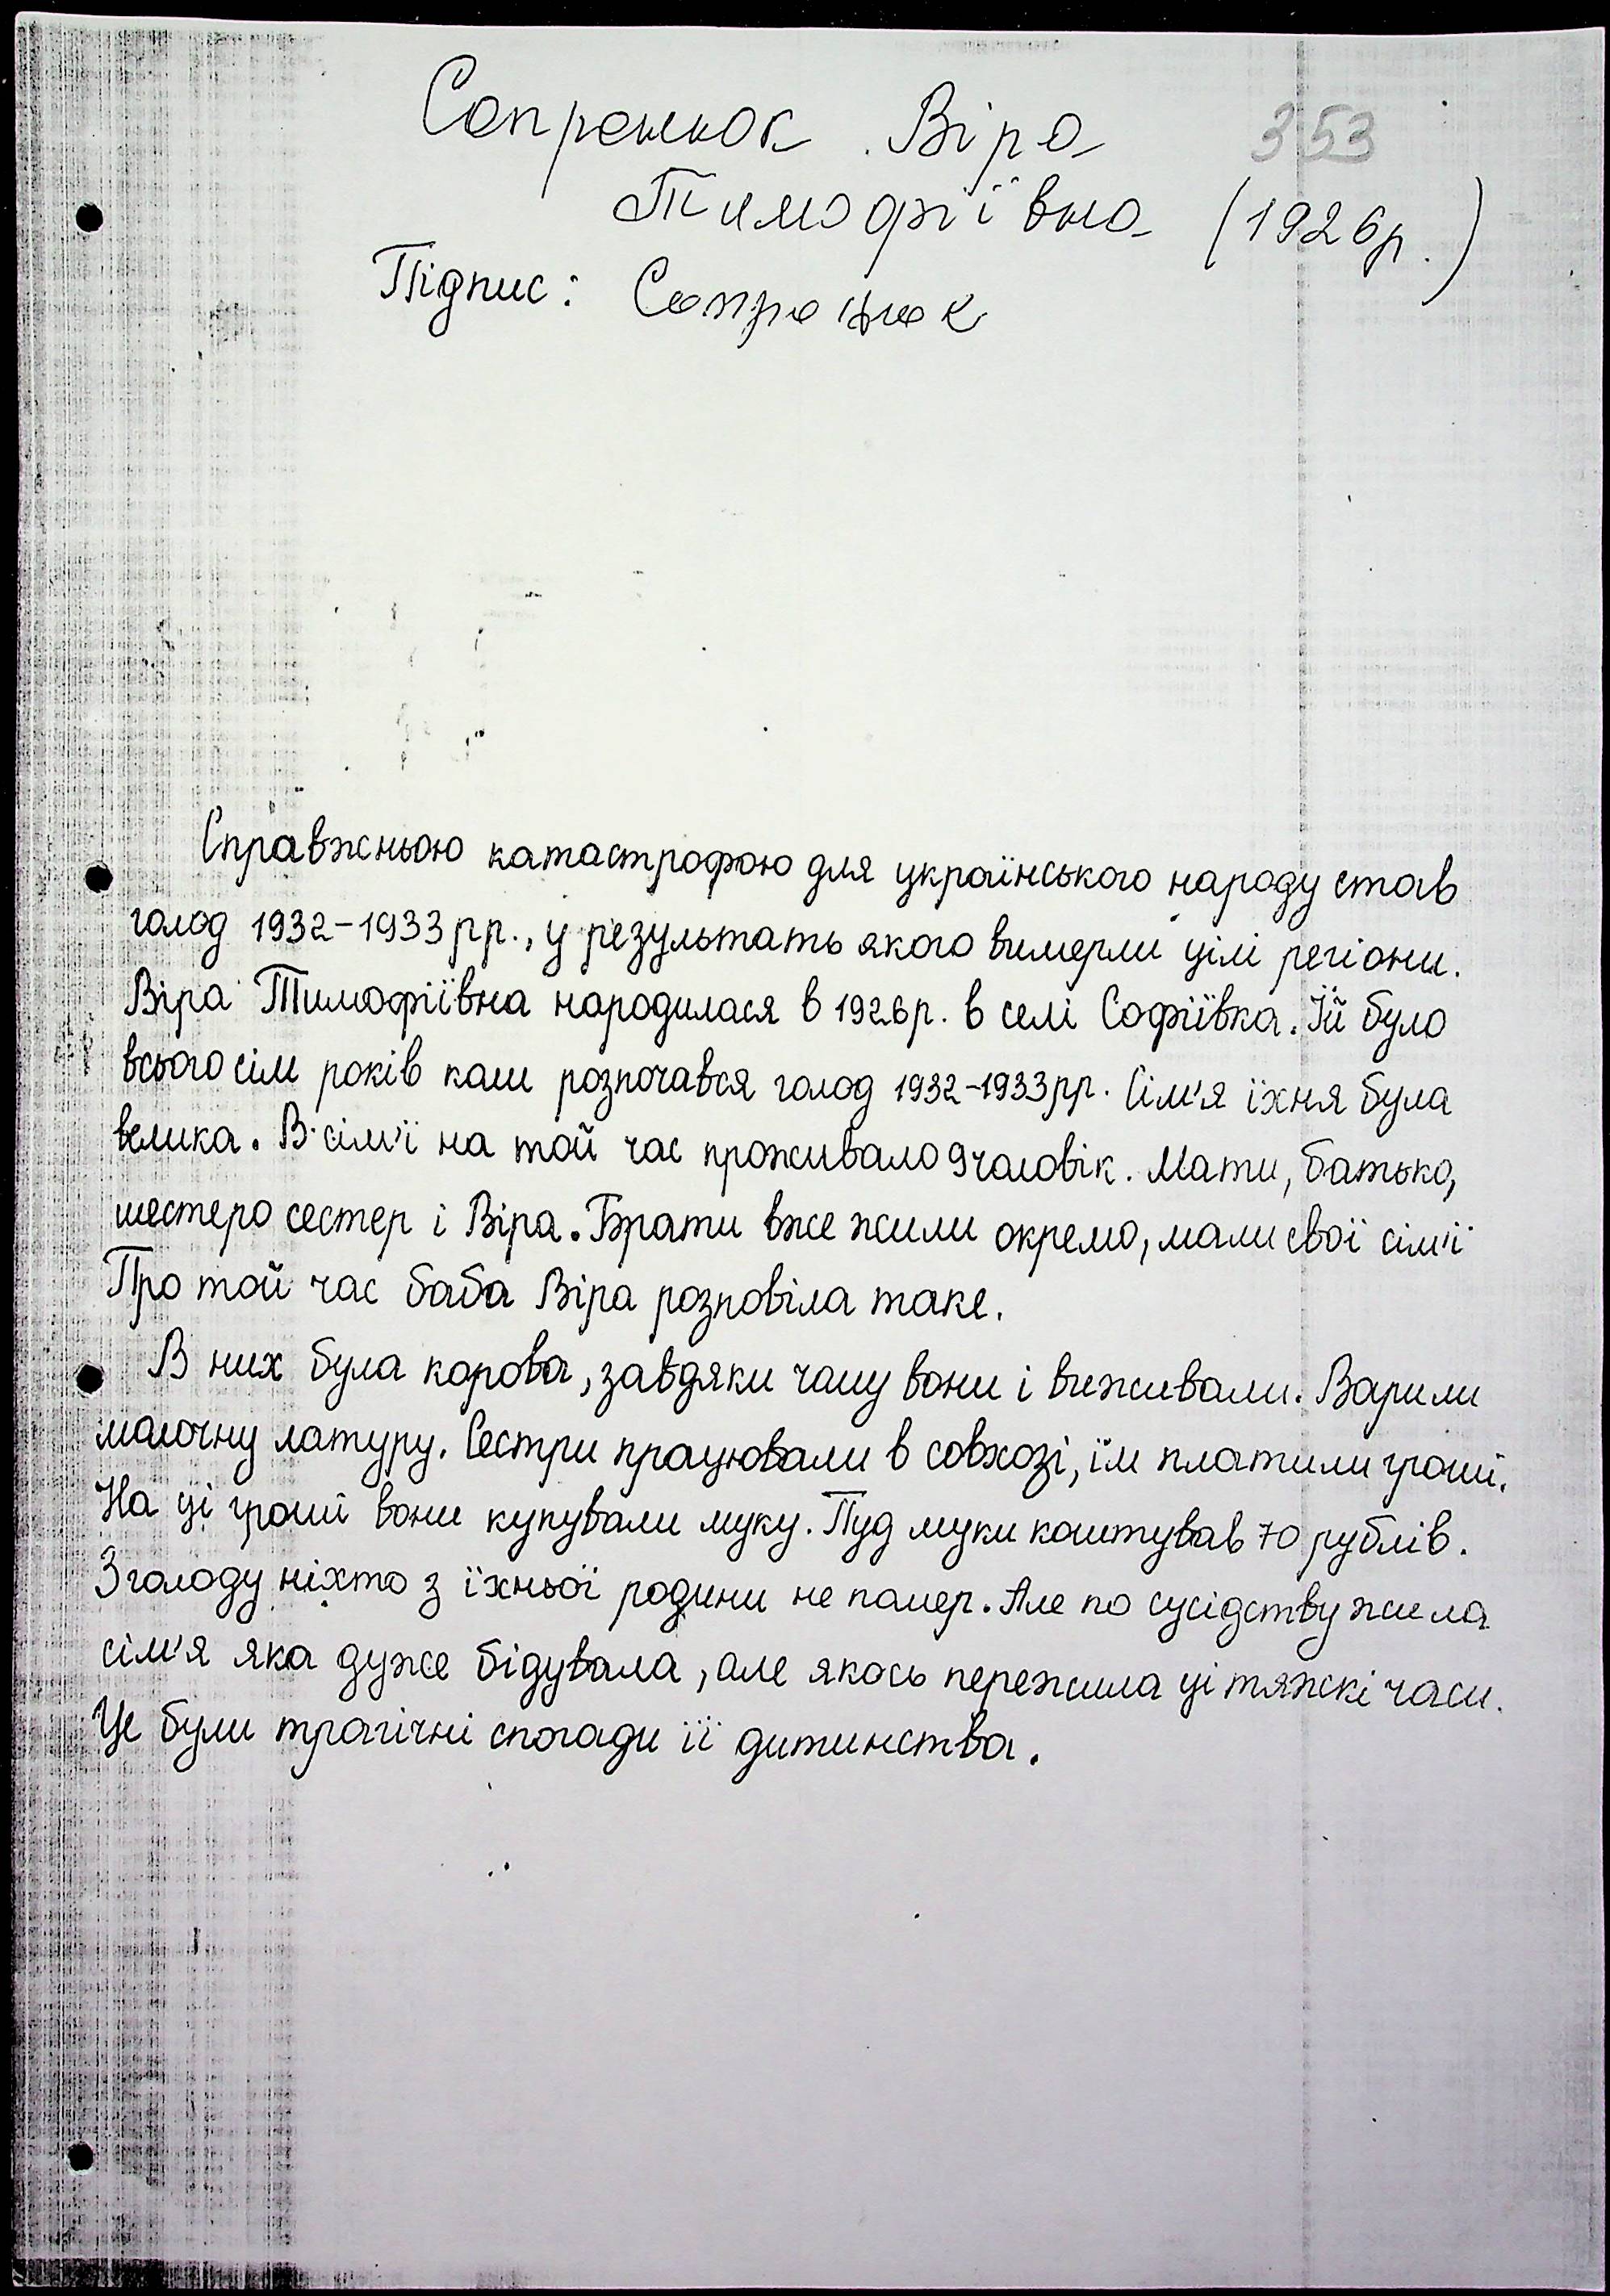 Сопронюк Віра
353
Тимофіївна (1926р.)
Підпис: Сопронюк
Справжньою катастрофою для українського народу став
голод 1932-1933рр., у результать якого вимерли цілі регіони.
Віра Тимофіївна народилася в 1926р. в селі Софіївка. Їй було
всього сім років коли розпочався голод 1932-1933рр. Сім'я їхня була
велика. В сім'ї на той час проживало 9 чоловік. Мати, батько,
шестеро сестер і Віра. Брати вже жили окремо, мали свої сім'ї
Про той час баба Віра розповіла таке.
В них була корова, завдяки чому вони і виживали. Варили
молочну латуру. Сестри працювали в совхозі, їм платили гроші.
На ці гроші вони купували муку. Пуд муки коштував 70 рублів.
З голоду ніхто з їхньої родини не помер. Але по сусідству жила
сім'я яка дуже бідувала, але якось пережила ці тяжкі часи.
Це були трагічні спогади її дитинства.